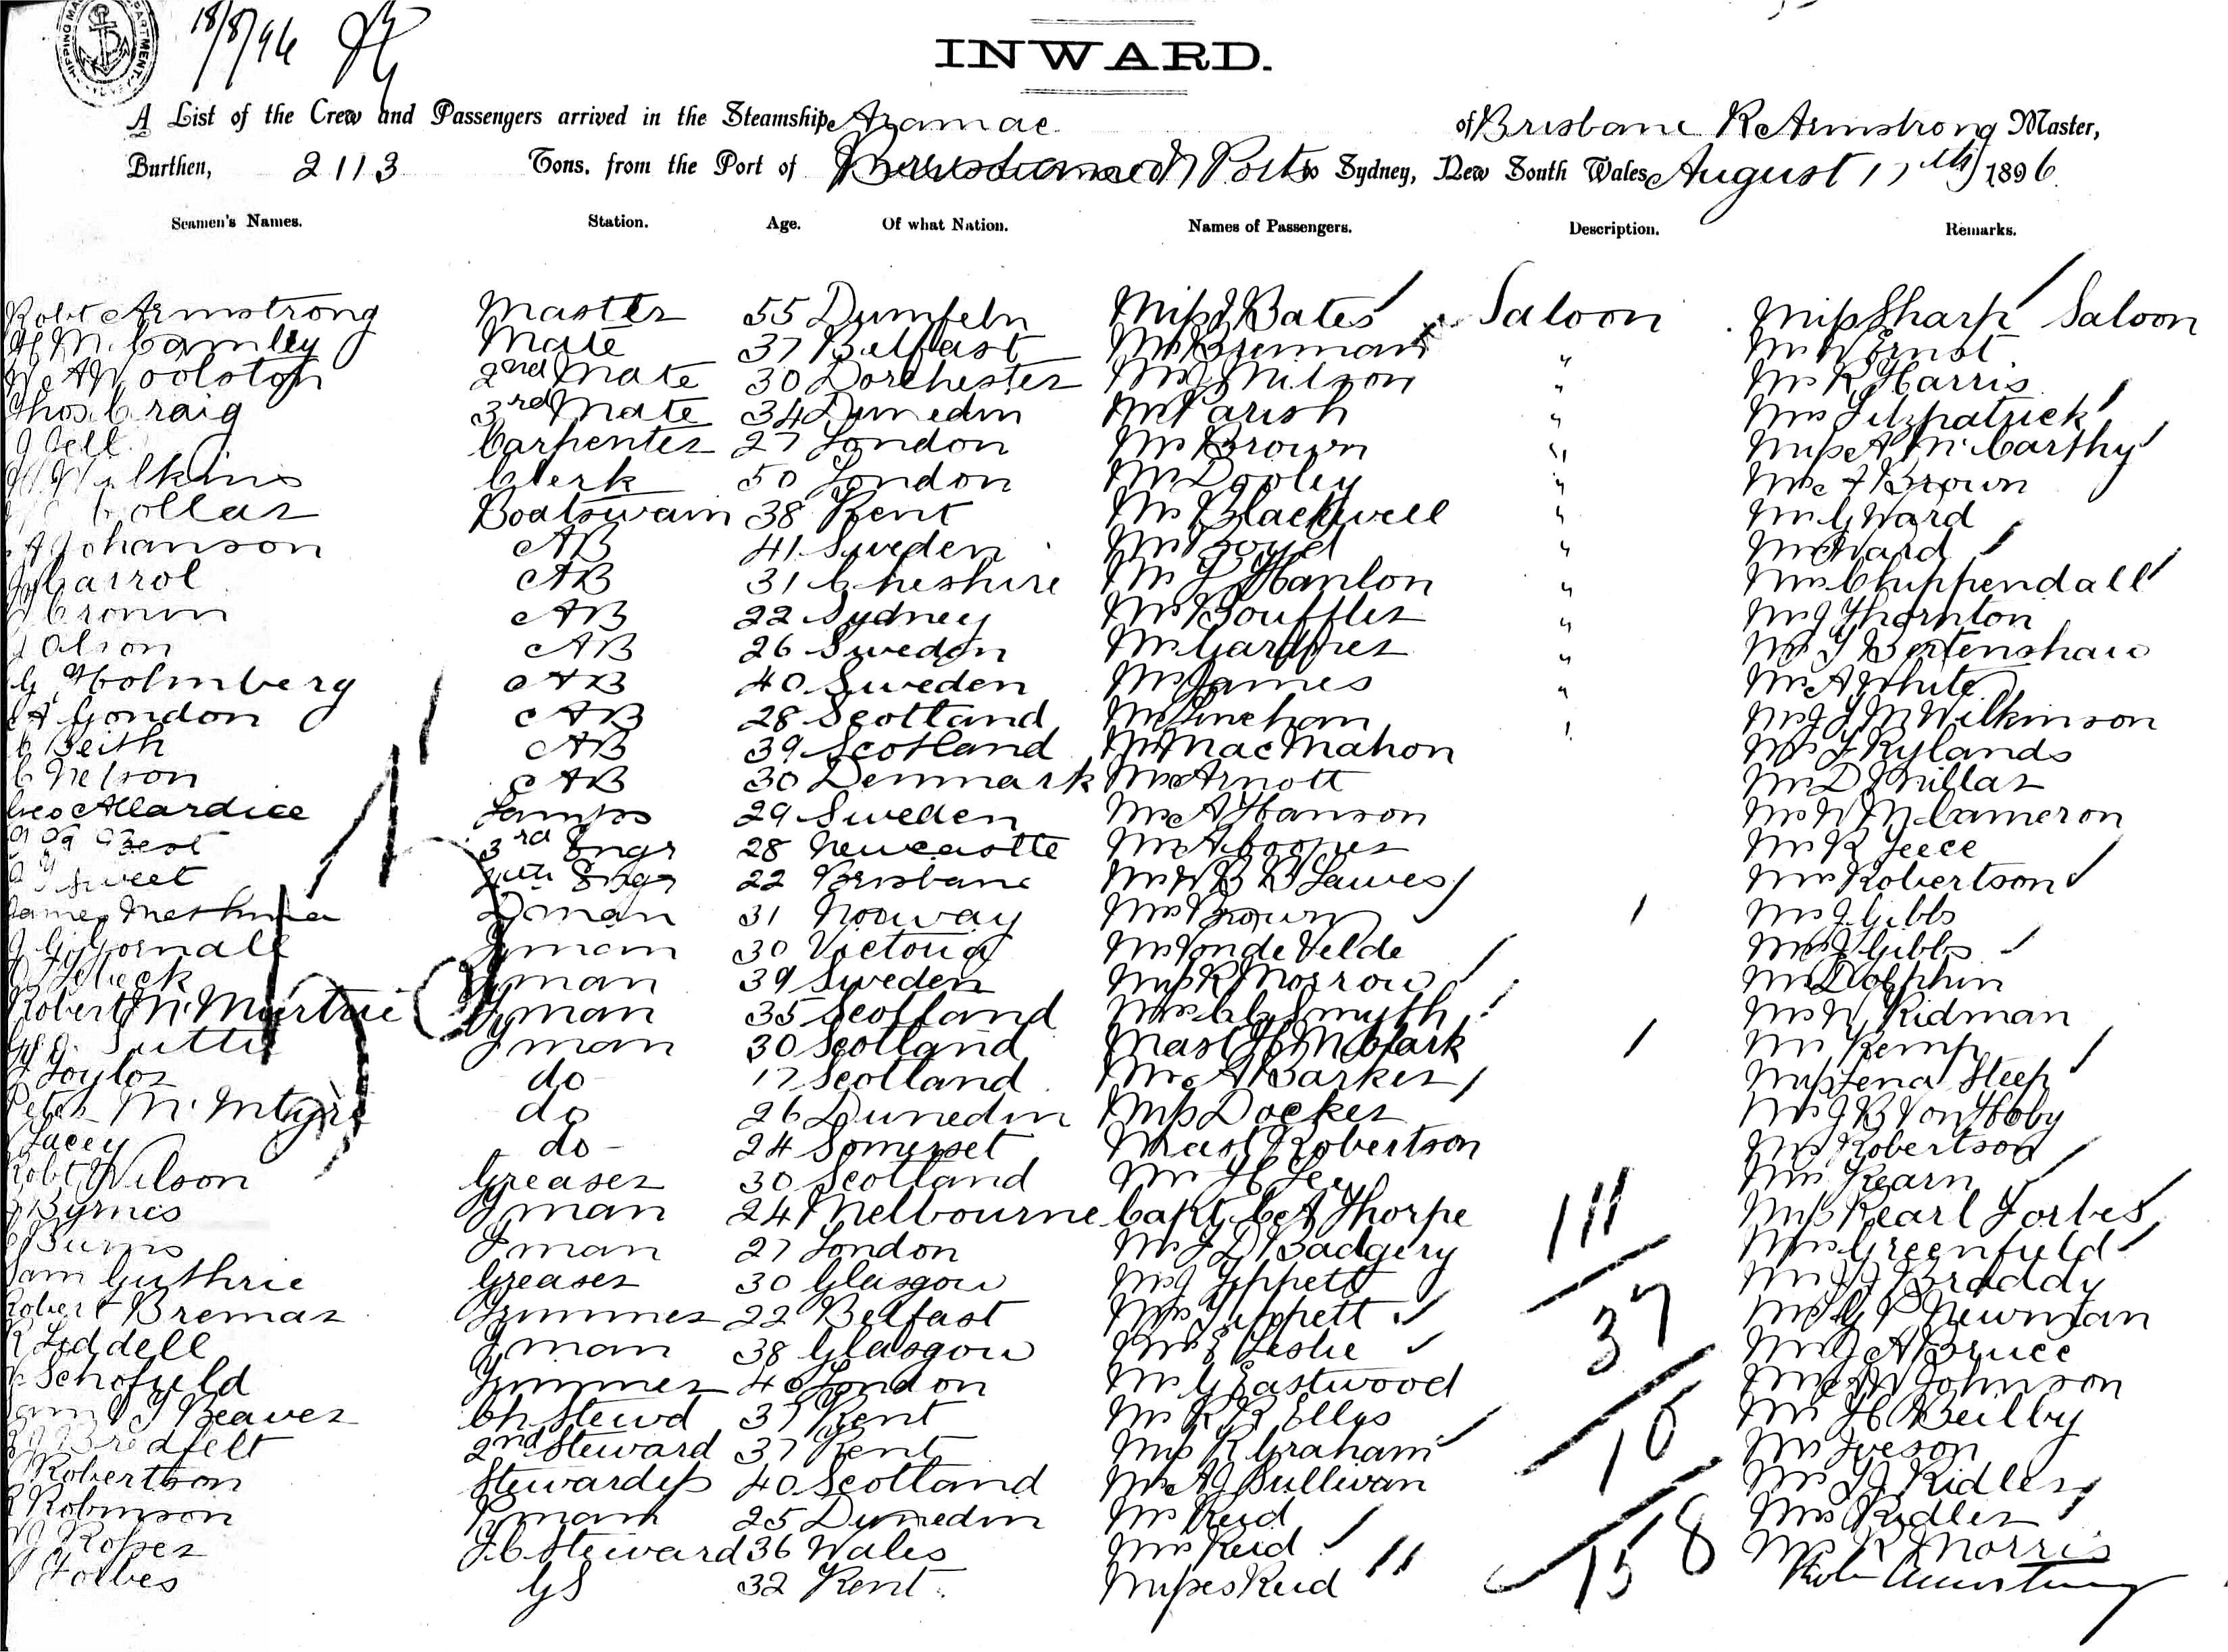 18/8/96
INWARD.
A List of the Crew and Passengers arrived in the Steamship Aramac of Brisbane R Armstrong Master,
Burthen, 2113 Tons. from the Port of Ports to Sydney, New South Wales August 17th 1896
Seamen's Names. Station. Age. Of what Nation. Names of Passengers. Description. Remarks.
Robt Armstrong Master 55 Miss J Bates Saloon Miss Sharp Saloon
Mate 37 Belfast Mr Brennan " Mr W Ernst
Woolston 2nd Mate 30 Dorchester Milson " Mr R Harris
Thos Craig 3rd Mate 34 Dunedin Mr Parish " Mrs Fitzpatrick
J Bell Carpenter 27 London Mr Brown " Miss A McCarthy
Wilkins Clerk 50 London Mr Dooley " Brown
Collar Boatswain 38 Kent Mr Blackwell " Mr G Ward
A Johanson AB 41 Sweden Mr Boyd " Ward
J Carrol AB 31 Cheshire Mr J Hanlon " Mrs Chippendall
Cronin AB 22 Sydney Mr Bouffler " Mr J Thornton
Olson AB 26 Sweden Mr Gardner " Mr T Bertenshaw
G Holmberg AB 40 Sweden Mr James " Mr A White
A Gondon AB 28 Scotland Mr Lineham " Wilkinson
Beith AB 39 Scotland Mr MacMahon Mr J Rylands
C Nelson AB 30 Denmark Mr Arnott Mr D Millar
Geo Allardice Lamps 29 Sweden Mr A Hanson Mr W McCameron
3rd Engr 28 Newcastle Mr A Cooper Mr R Teece
Sweet 4th Engr 22 Brisbane Lawes Mrs Robertson
James 31 Norway Mrs Brown Mr J Gibbs
J G Gornall Fman 30 Victoria Mr Vonde Velde Mrs J Gibbs
Fman 39 Sweden Miss R Morrow Mr Dolphin
Robert Fman 35 Scotland Smyth Mr W Kidman
Fman 30 Scotland Mast H McClark Mr Kemp
J Taylor do 17 Scotland Mr A Barker Miss Lena Steep
Peter McIntyre do 26 Dunedin Miss Docker Mr J B Von Hoby
Lacey do 24 Somerset Mast Robertson Mr Robertson
Robt Wilson Greaser 30 Scotland Mr H Lee Mrs Kearn
J Byrnes Fman 24 Melbourne Capt C A Thorpe Miss Pearl Forbes
Burns Fman 27 London Badgery Mrs Greenfield
Sam Guthrie Greaser 30 Glasgow Mr J Tippett Braddy
Robert Bremar Trimmer 22 Belfast Mrs Tippett Newman
R Liddell Fman 38 Glasgow Mrs E Leslie Mr J A Bruce
Schofield Trimmer 40 London Mr G Eastwood Johnson
Beaver Ch Stewd 37 Kent Mr R R Ellis Mr H Beilby
Bredfelt 2nd Steward 37 Kent Miss R Graham Mr Iveson
Robertson Stewardess 40 Scotland Mr A J Sullivan Ridler
Robinson Pman 25 Dunedin Mr Reid Mrs Ridler
Roper F.C. Steward 36 Wales Mrs Reid Mr R Morris
Forbes GS 32 Kent Misses Reid Robt Armstrong
111
37
10
158